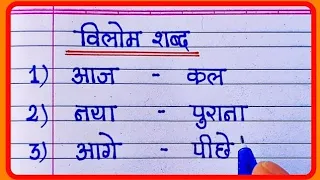 विलोम शब्द
1) आज - कल
2) नया - पुराना
3) आगे - पीछे